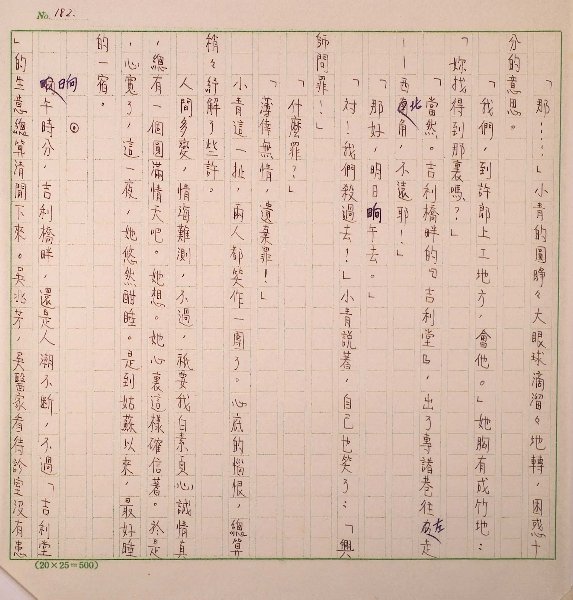 No. 182.
「那……」小青的圓睜々大眼球滴溜々地轉，困惑十
分的意思。
「我們，到許郎上工地方，會他。」她胸有成竹地：
「妳找得到那裏嗎？」
「當然。吉利橋畔的『吉利堂』，出了專諸巷往左走
——西北角，不遠耶！」
「那好，明日晌午去。」
「對！我們殺過去！」小青說著，自己也笑了：「興
師問罪！」
「什麼罪？」
「薄倖無情，遺棄罪！」
小青這一扯，兩人都笑作一團了。心底的惱恨，總算
稍々紓解了些許。
人間多變，情海難測，不過，祇要我白素貞心誠情真
，總有一個圓滿情天吧。她想。她心裏這樣確信著。於是
，心寬了，這一夜，她悠然酣睡。是到姑蘇以來，最好睡
的一宿。
晌午時分，吉利橋畔，還是人潮不斷，不過「吉利堂
」的生意總算清閒下來。吳兆芳，吳醫家看待診室沒有患
(20×25=500)